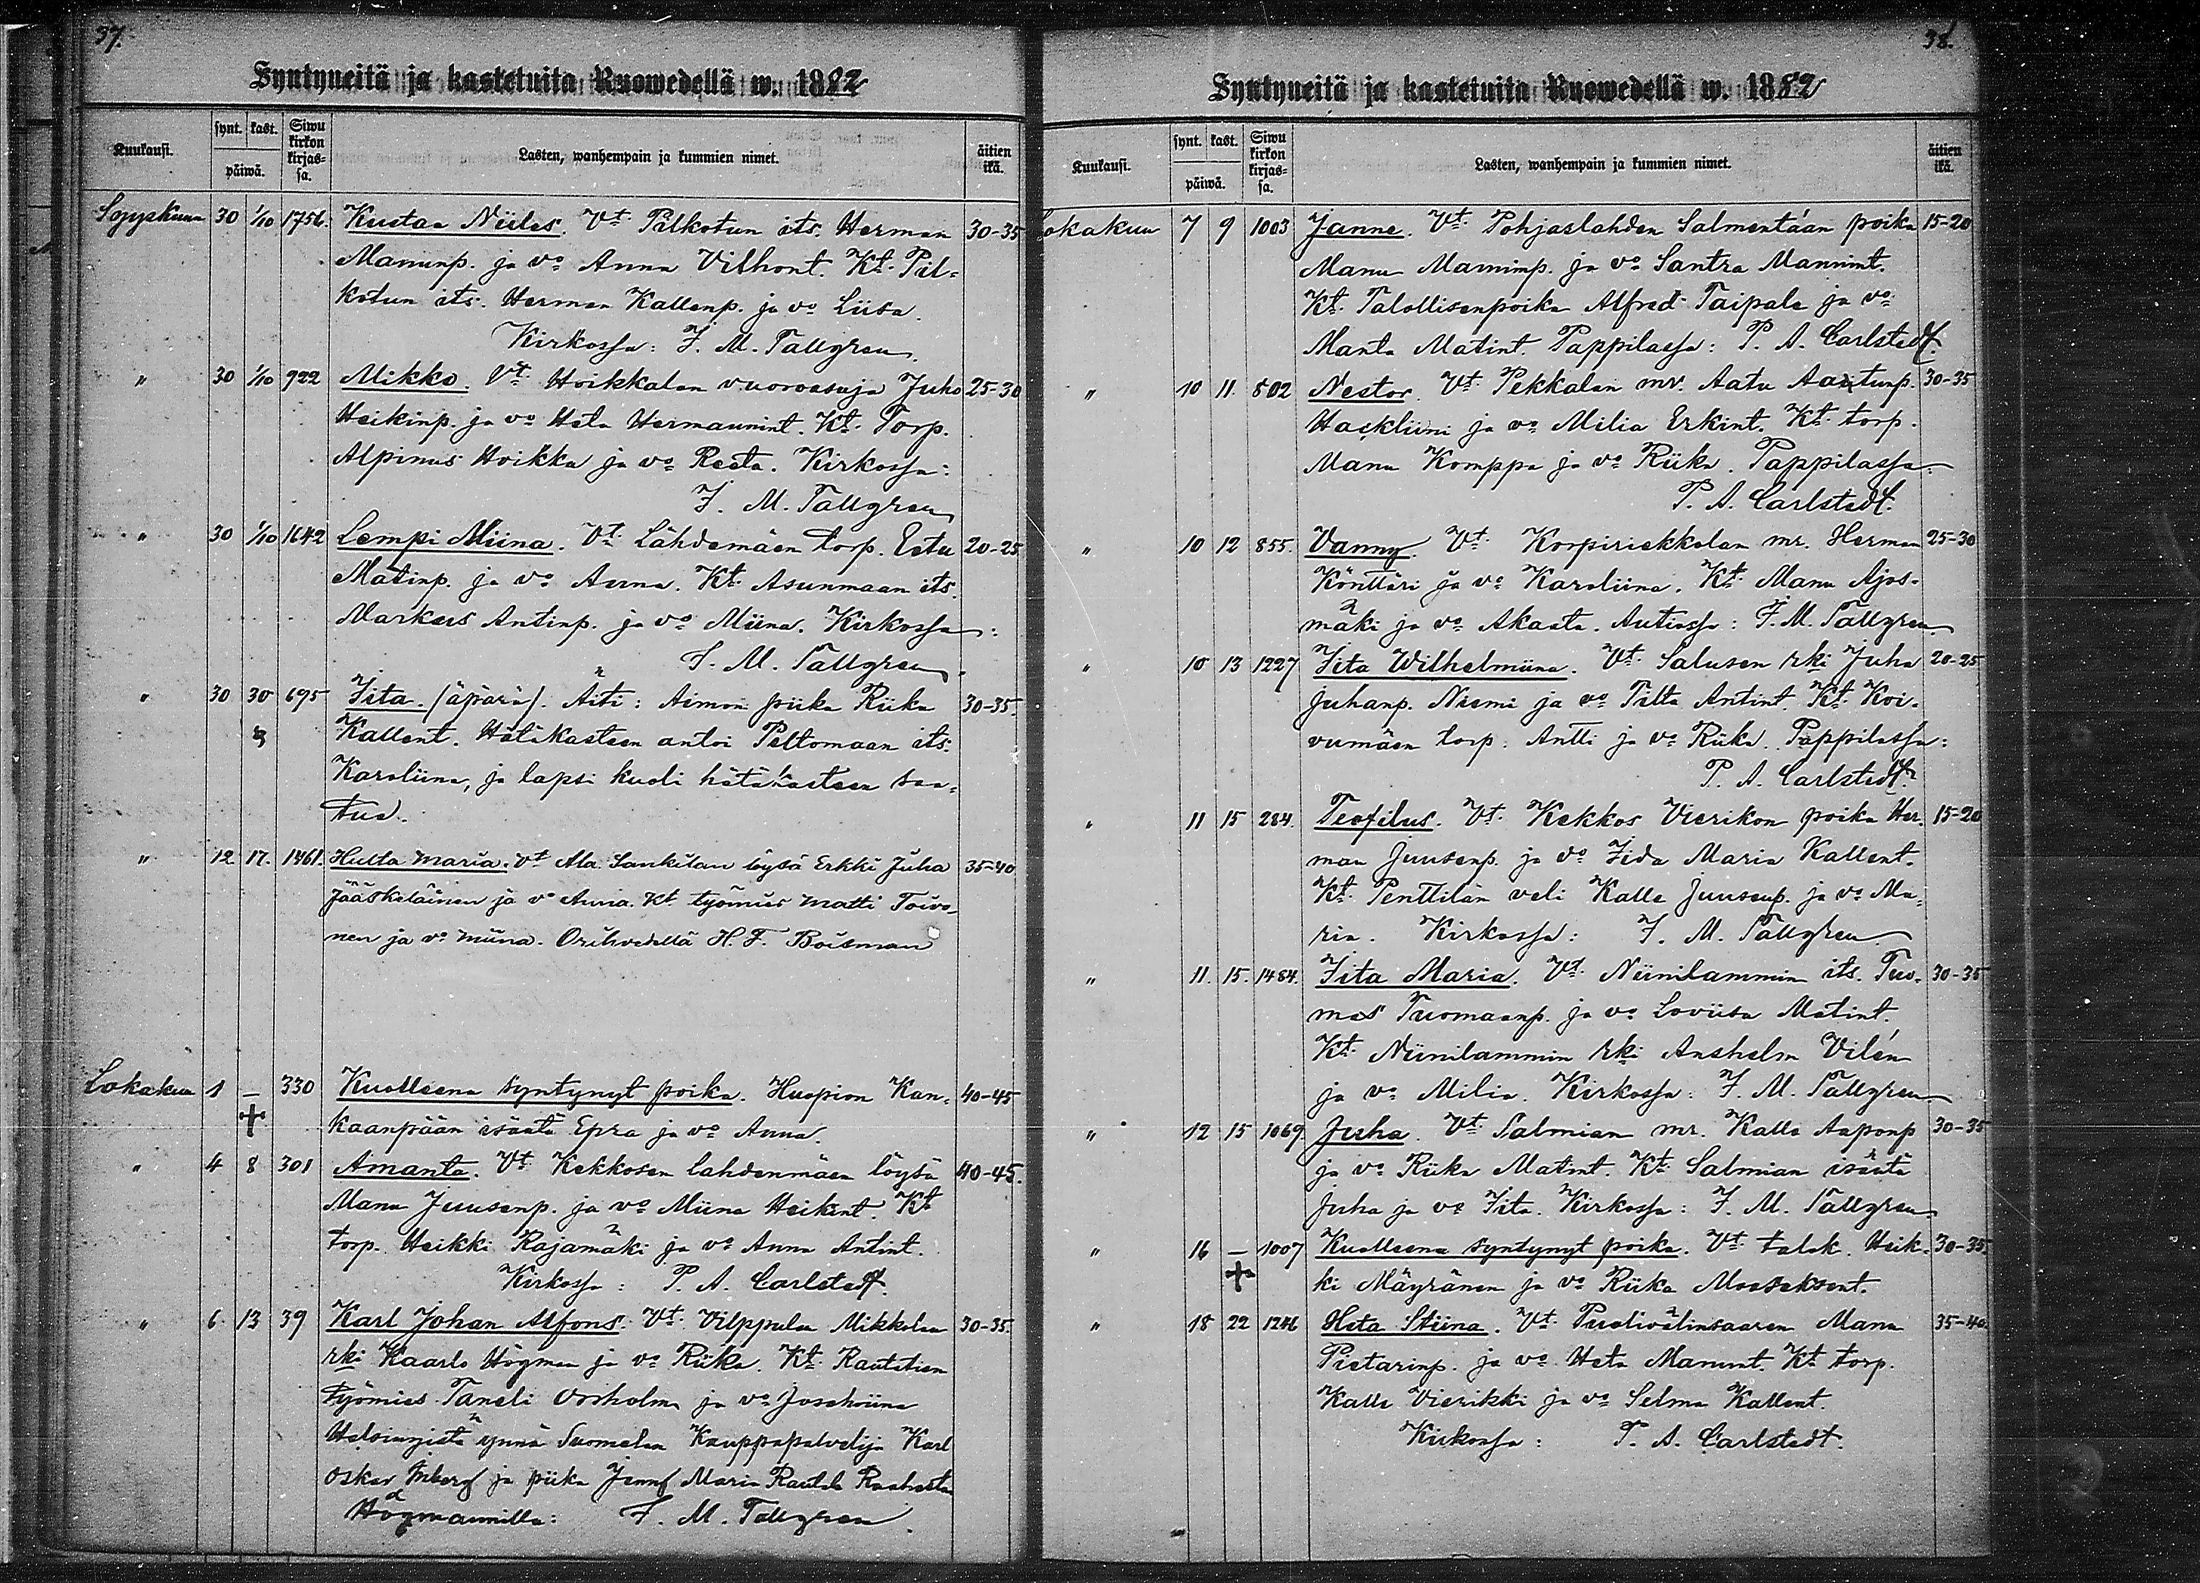 37.
Syntyneitä ja kastetuita Ruowedellä w. 1882
Kuukausi.
synt. kast.
päiwä.
Siwu kirkon kirjas=sa.
Lasten, wanhempain ja kummien nimet.
äitien ikä.
Syyskuun 30 1/10 1756. Kustaa Niiles. Vt. Pilkotun its. Herman 30-35
Manunp. ja vo Anna Vilhont. Kt. Pil=
kotun its. Herman Kallenp. ja vo Liisa.
Kirkossa: F. M. Tallgren.
" 30 1/10 922 Mikko. Vt. Hoikkalan vuoroasuja Juho 25-30
Heikinp. ja vo Heta Hermannint. Kt. Torp.
Alpinus Hoikka ja vo Reeta. Kirkossa:
F. M. Tallgren
" 30 1/10 1642 Lempi Miina. Vt. Lähdemäen torp. Eetu 20-25
Matinp. ja vo Anna. Kt. Asunmaan its.
Markus Antinp. ja vo Miina. Kirkossa:
F. M. Tallgren.
" 30 30 695 Iita. (äpärä). Äiti: Aimon piika Riika 30-35.
Kallent. Hätäkasteen antoi Peltomaan its.
Karoliina, ja lapsi kuoli hätäkasteen saa=
tua.
" 12 17. 1461. Hulta Maria. Vt Ala Sankilan löysä Erkki Juha 35-40
Jääskeläinen ja vo Anna. Kt. työmies Matti Toivo-
nen ja vo Miina. Orihvedellä H. F. Boisman
Lokakuu 1 — 330 Kuolleena syntynyt poika. Huopion Kan= 40-45
+ kaanpään isäntä Epra ja vo Anna.
" 4 8 301 Amanta. Vt. Kekkosen lahdenmäen löysä 40-45.
Manu Juusenp. ja vo Miina Heikint. Kt
torp. Heikki Rajamäki ja vo Anna Antint.
Kirkossa: P. A. Carlstedt.
" 6. 13 39 Karl Johan Alfons. Vt. Vilppulan Mikkolan 30-35.
rki Kaarlo Högman ja vo Riika. Kt. Rautatien
työmies Taneli Forsholm ja vo Josehiina
Helsingistä ynnä Suomelan Kauppapalvelija Karl
Oskar Inberg ja piika Jenny Maria Rautila
Högmannilla: F. M. Tallgren.
38.
Syntyneitä ja kastetuita Ruowedellä w. 1882
Kuukausi.
synt. kast.
päiwä.
Siwu kirkon kirjas=sa.
Lasten, wanhempain ja kummien nimet.
äitien ikä.
Lokakuu 7 9 1003 Janne. Vt. Pohjaslahden Salmentaan poika 15-20
Manu Manninp. ja vo Santra Mannint.
Kt. Talollisenpoika Alfred Taipale ja vo
Manta Matint. Pappilassa: P. A. Carlstedt.
" 10 11. 802 Nestor. Vt. Pekkalan mr. Aatu Aatunp. 30-35
Hackliini ja vo Milia Erkint. Kt. torp.
Manu Komppa ja vo Riika. Pappilassa.
P. A. Carlstedt.
" 10 12 855. Vanny. Vt. Korpiriekkolan mr. Herman 25-30
Könttäri ja vo Karoliina. Kt. Manu Ajos-
mäki ja vo Akaata. Autiossa: F. M. Tallgren.
" 10 13 1227 Iita Wilhelmiina. Vt. Salusen rki Juha 20-25
Juhanp. Niemi ja vo Tilta Antint. Kt. Koi-
vumäen torp. Antti ja vo Riika. Pappilassa:
P. A. Carlstedt.
" 11 15 284. Teofilus. Vt. Kekkos Vierikon poika Her- 15-20
man Juusenp. ja vo Iida Maria Kallent.
Kt. Penttilän veli Kalle Juusenp. ja vo Ma=
ria. Kirkossa: F. M. Tallgren.
" 11. 15. 1484. Iita Maria. Vt. Niinilammin its. Tuo- 30-35
mas Tuomaanp. ja vo Loviisa Matint.
Kt. Niinilammin rki Anshelm Vilén
ja vo Milia. Kirkossa: F. M. Tallgren.
" 12 15 1069. Juha. Vt. Salmian mr. Kalle Aaponp. 30-35
ja vo Riika Matint. Kt. Salmian isäntä
Juha ja vo Iita. Kirkossa: F. M. Tallgren.
" 16 — 1007 Kuolleena syntynyt poika. Vt. talok. Heik- 30-35.
+ ki Mäyränen ja vo Riika Mooseksent.
" 18 22 1246 Heta Stiina. Vt. Puolivälinsaaren Manu 35-40.
Pietarinp. ja vo Heta Manunt. Kt torp.
Kalle Vierikki ja vo Selma Kallent.
Kirkossa: P. A. Carlstedt.